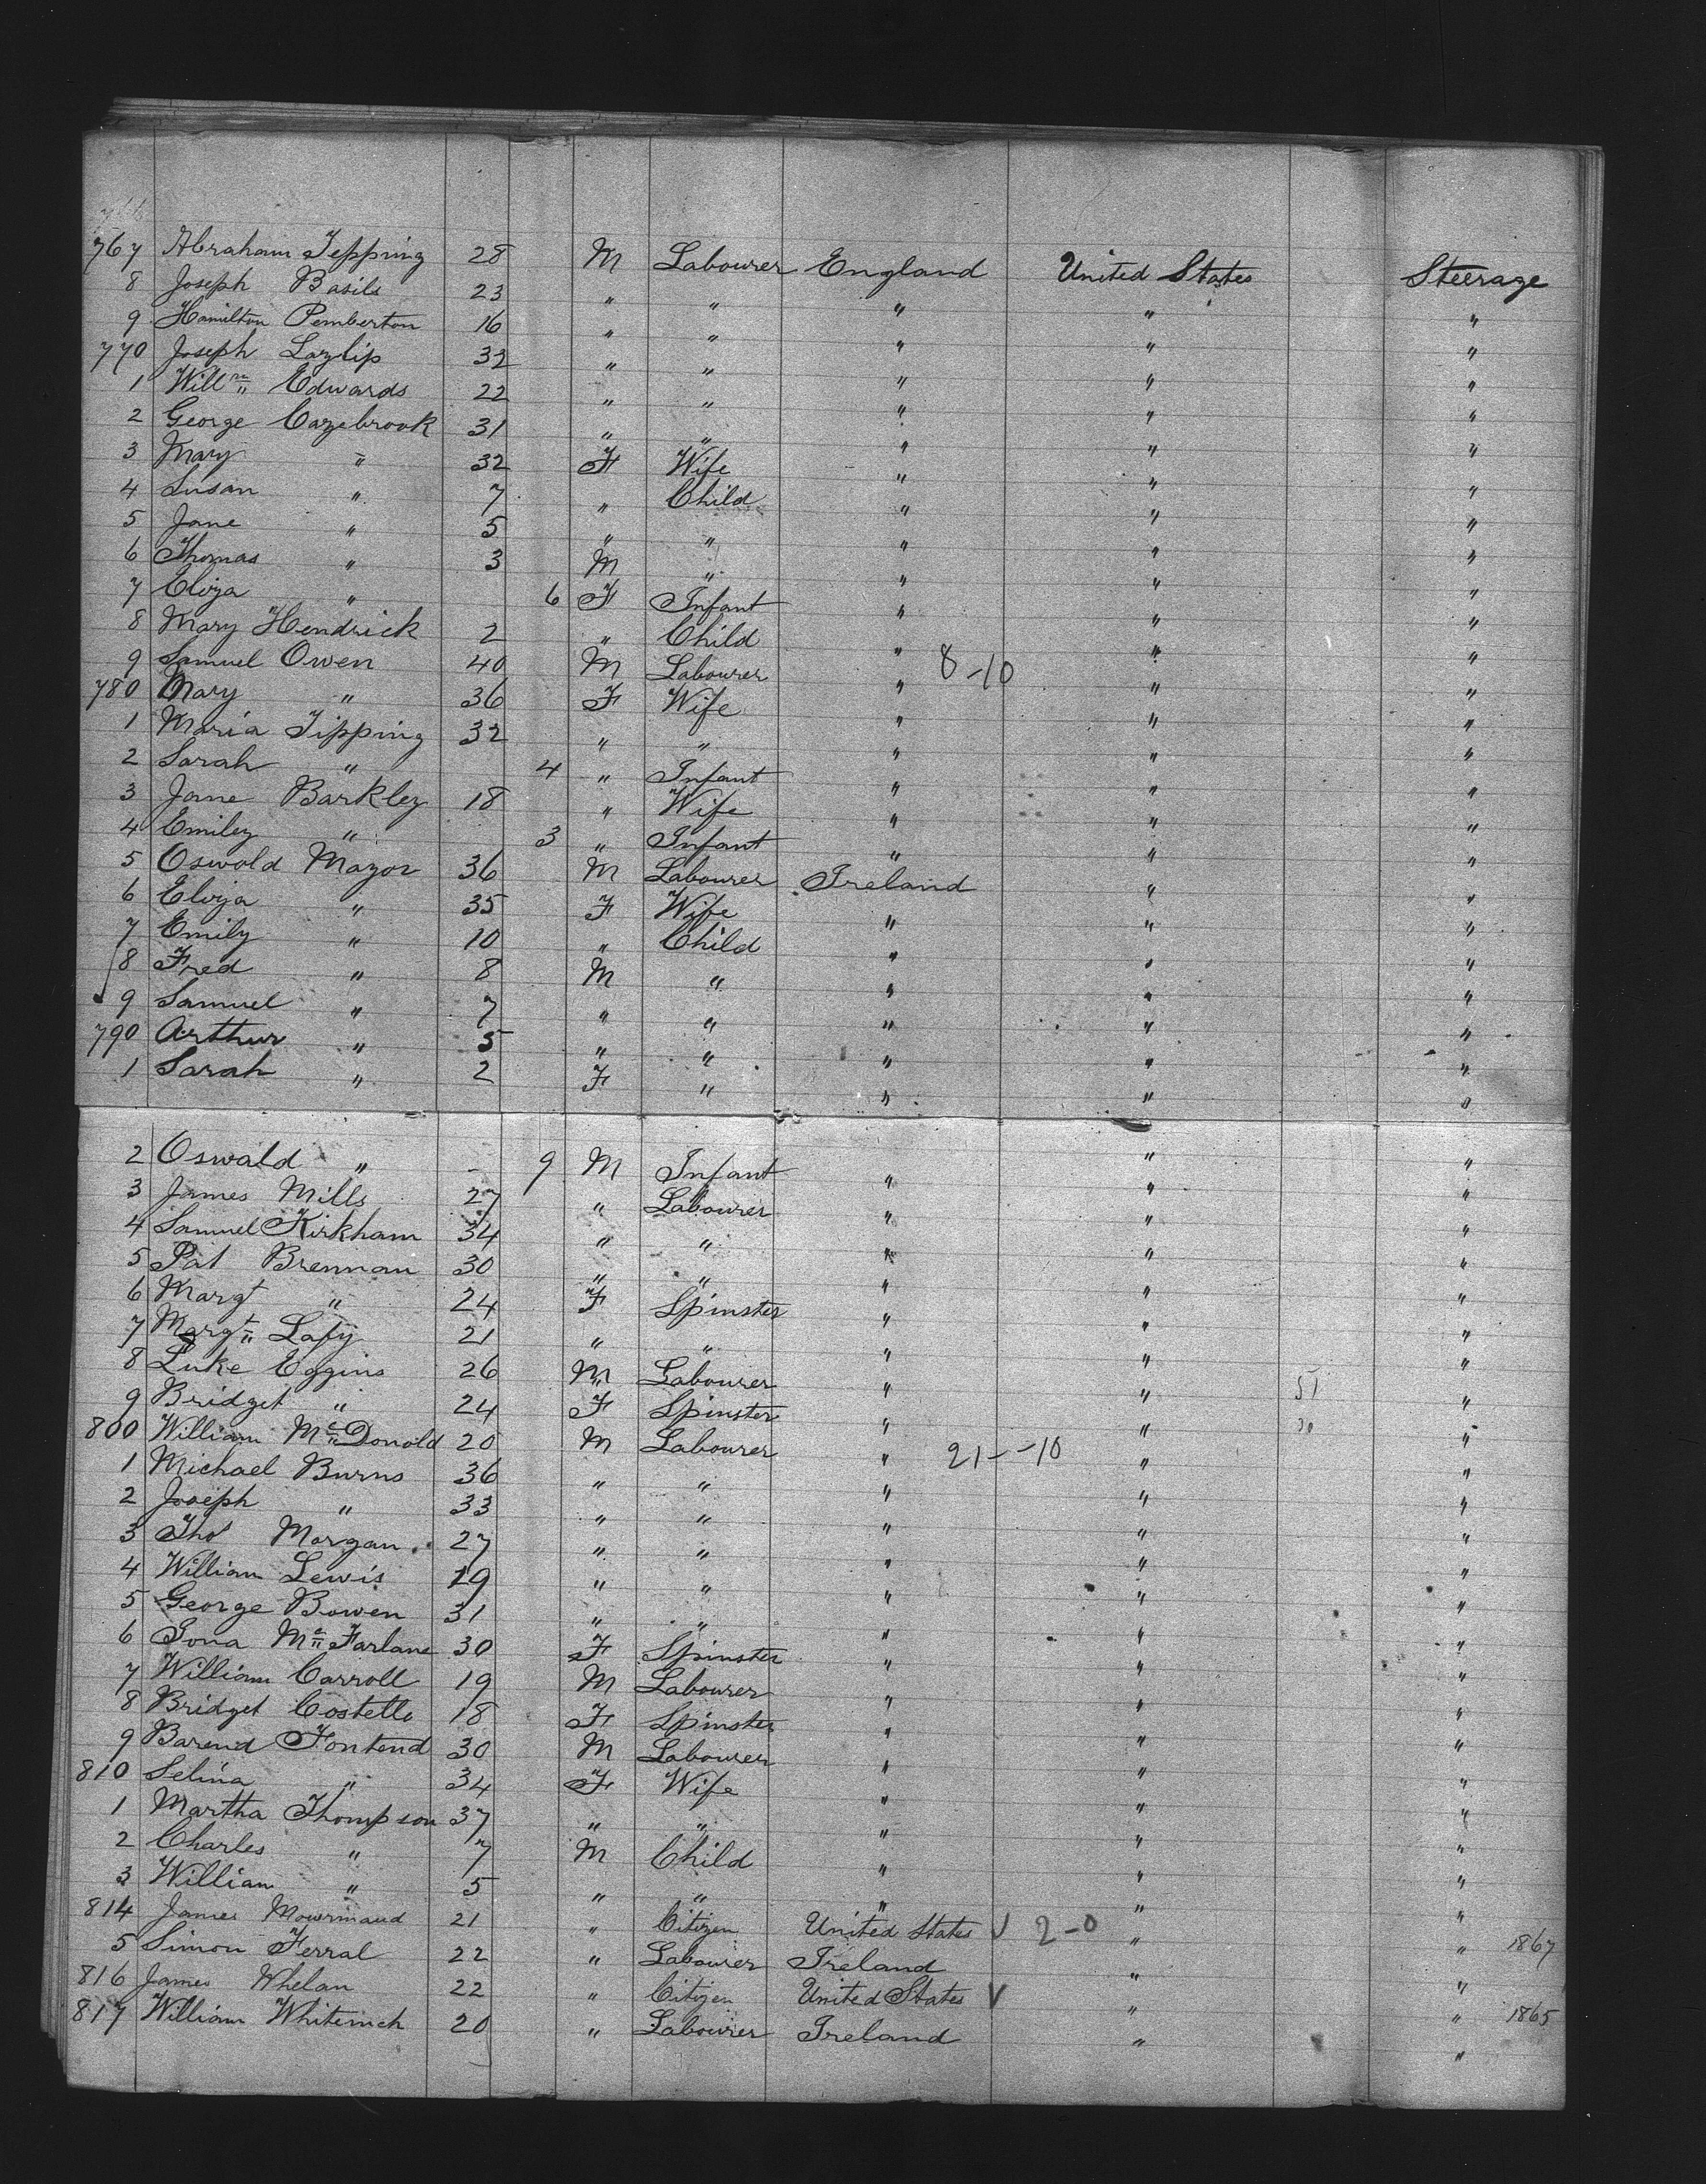 767 Abraham Tepping 28 M Labourer England United States Steerage
8 Joseph Basils 23 " " " " "
9 Hamilton Pemberton 16 " " " " "
770 Joseph Lazlip 32 " " " " "
1 Willm Edwards 22 " " " " "
2 George Cazebrook 31 " " " " "
3 Mary " 32 F Wife " " "
4 Susan " 7 " Child " " "
5 Jane " 5 " " " " "
6 Thomas " 3 M " " " "
7 Eliza " 6 F Infant " " "
8 Mary Hendrick 2 " Child " " "
9 Samuel Owen 40 M Labourer " 8-10 " "
780 Mary " 36 F Wife " " "
1 Maria Tipping 32 " " " " "
2 Sarah " 4 " Infant " " "
3 Jane Barkley 18 " Wife " " "
4 Emiley " 3 " Infant " " "
5 Oswold Mazor 36 M Labourer Ireland " "
6 Eliza " 35 F Wife " " "
7 Emily " 10 " Child " " "
8 Fred " 8 M " " " "
9 Samuel " 7 " " " " "
790 Arthur " 5 " " " " "
1 Sarah " 2 F " " " "
2 Oswald " 9 M Infant " " "
3 James Mills 27 " Labourer " " "
4 Samuel Kirkham 34 " " " " "
5 Pat Brennan 30 " " " " "
6 Margt " 24 F Spinster " " "
7 Margt 21 " " " " "
8 Luke Eggins 26 M Labourer " " 51 "
9 Bridget " 24 F Spinster " " "
800 William McDonold 20 M Labourer " 21--10 " "
1 Michael Burns 36 " " " " "
2 Joseph " 33 " " " " "
3 Thos Morgan 27 " " " " "
4 William Lewis 19 " " " " "
5 George Bowen 31 " " " " "
6 McFarlane 30 F Spinster " " "
7 William Carroll 19 M Labourer " " "
8 Bridget Costello 18 F Spinster " " "
9 Barend Fontend 30 M Labourer " " "
810 Selina " 34 F Wife " " "
1 Martha Thompson 37 " " " " "
2 Charles " 7 M Child " " "
3 William " 5 " " " " "
814 James Mowrmaud 21 " Citizen United States V 2-0 " " 1867
5 Simon Ferral 22 " Labourer Ireland " "
816 James Whelan 22 " Citizen United States V " " 1865
817 William Whitench 20 " Labourer Ireland " "